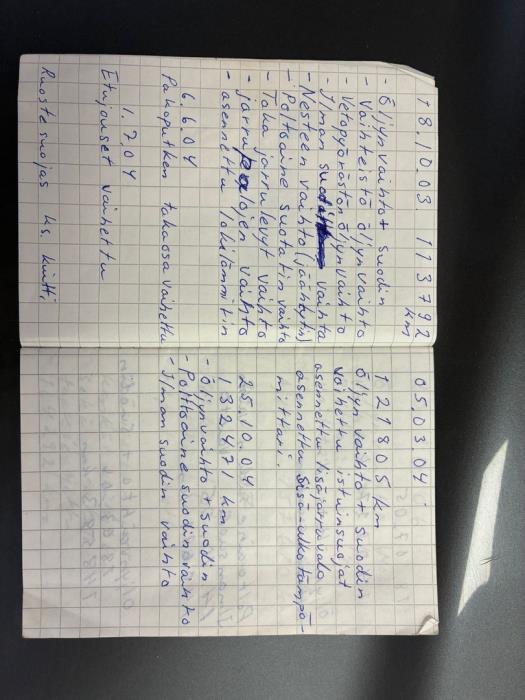 18.10.03 113792 km
- Öljyn vaihto + suodin
- Vaihteistö öljyn vaihto
- Vetopyörästön öljyn vaihto
- Ilman suodin vaihto
- Nesteen vaihto (jäähdytin)
- Polttoaine suotatin vaihto
- Taka jarrulevyt vaihto
- jarru palojen vaihto
- asennettu lohkolämmitin
6.6.04
Pakoputken takaosa vaihettu
1.7.04
Etujouset vaihettu
Ruostesuojas ks. kuitti
05.03.04
121805 km
Öljyn vaihto + suodin
vaihettu istuinsuojat
asennettu lisäjarruvalo
asennettu sisä-ulko lämpö-
mittari.
25.10.04
132471 km
- Öljynvaihto + suodin
- Polttoaine suodin vaihto
- Ilman suodin vaihto